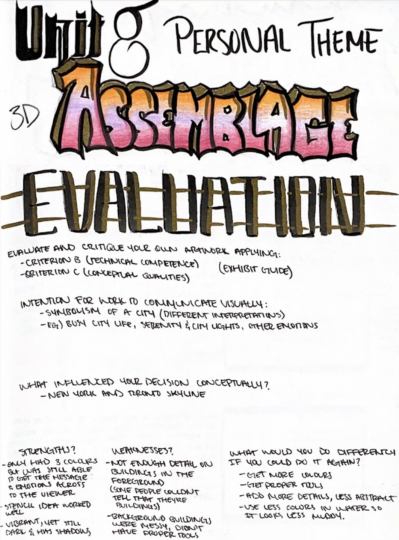 Unit 8 PERSONAL THEME
3D ASSEMBLAGE
EVALUATION
EVALUATE AND CRITIQUE YOUR OWN ARTWORK APPLYING:
- CRITERION B (TECHNICAL COMPETENCE)
- CRITERION C (CONCEPTUAL QUALITIES) (EXHIBIT GUIDE)
INTENTION FOR WORK TO COMMUNICATE VISUALLY:
- SYMBOLISM OF A CITY (DIFFERENT INTERPRETATIONS)
- EG) BUSY CITY LIFE, SERENITY & CITY LIGHTS, OTHER EMOTIONS
WHAT INFLUENCED YOUR DECISION CONCEPTUALLY?
- NEW YORK AND TORONTO SKYLINE
STRENGTHS?
- ONLY HAD 3 COLOURS
BUT WAS STILL ABLE
TO GET THE MESSAGE
& EMOTIONS ACROSS
TO THE VIEWER
- STENCIL IDEA WORKED
WELL
- VIBRANT, YET STILL
DARK & HAS SHADOWS
WEAKNESSES?
- NOT ENOUGH DETAIL ON
BUILDINGS IN THE
FOREGROUND
(SOME PEOPLE COULDN'T
TELL THAT THEY'RE
BUILDINGS)
- BACKGROUND BUILDINGS
WERE MESSY, DIDN'T
HAVE PROPER TOOLS
WHAT WOULD YOU DO DIFFERENTLY
IF YOU COULD DO IT AGAIN?
- GET MORE COLOURS
- GET PROPER TOOLS
- ADD MORE DETAILS, LESS ABSTRACT
- USE LESS COLORS IN WATER SO
IT LOOKS LESS MUDDY.